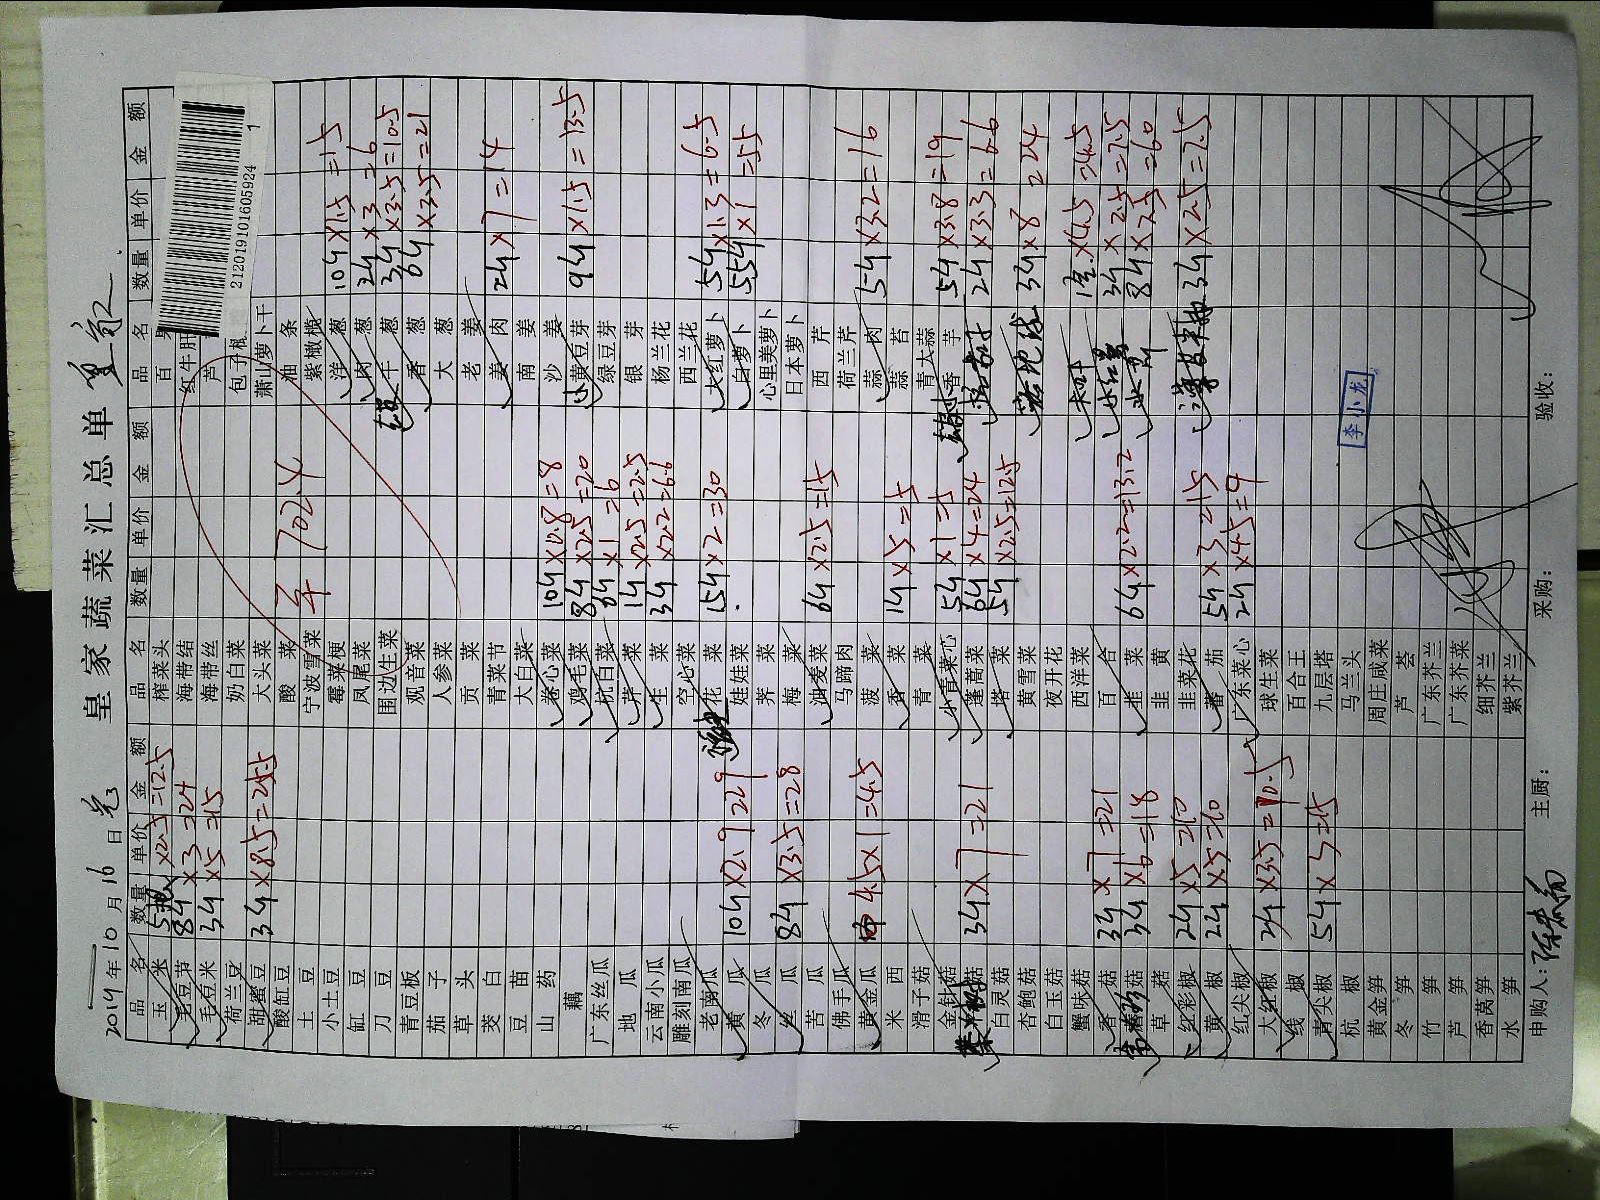 皇家蔬菜汇总单
2019年10月16日
品名 数量 单价 金额 品名 数量 单价 金额 品名 数量 单价 金额
玉米 ×2.5=12.5 榨菜头 百
毛豆节 8斤×3=24 海带结 红牛肝
毛豆米 3斤×5=15 海带丝 芦
荷兰豆 奶白菜 包子
甜蜜豆 3斤×8.5=25.5 大头菜 萧山萝卜干
酸缸豆 酸菜 油条
土豆 宁波雪菜 紫橄榄
小土豆 霉菜梗 洋葱 10斤×1.5=15
缸豆 凤尾菜 肉葱 2斤×3=6
刀豆 围边生菜 干葱 3斤×3.5=10.5
青豆板 观音菜 香葱 6斤×3.5=21
茄子 人参菜 大葱
草头 贡菜 老姜
茭白 青菜节 姜肉 2斤×7=14
豆苗 大白菜 南姜
山药 卷心菜 10斤×0.8=8 沙姜
藕 鸡毛菜 8斤×2.5=20 黄豆芽 9斤×1.5=13.5
广东丝瓜 杭白菜 6斤×1=6 绿豆芽
地瓜 芹菜 1斤×2.5=2.5 银芽
云南小瓜 生菜 3斤×2.2=6.6 杨兰花
雕刻南瓜 空心菜 西兰花
老南瓜 花菜 15斤×2=30 大红萝卜 5斤×1.3=6.5
黄瓜 10斤×2.9=29 娃娃菜 白萝卜 55斤×1=55
冬瓜 荠菜 心里美萝卜
丝瓜 8斤×3.5=28 梅菜 日本萝卜
苦瓜 油麦菜 6斤×2.5=15 西芹
佛手瓜 马蹄肉 荷兰芹
黄金瓜 4.5×1=4.5 菠菜 蒜肉 5斤×3.2=16
米西 香菜 1斤×5=5 蒜苔
滑子菇 青菜 青大蒜
金针菇 小青菜心 5斤×1=5 小香芋 5斤×3.8=19
3斤×7=21 蓬蒿菜 6斤×4=24 2斤×3.3=6.6
白灵菇 塔菜 5斤×2.5=12.5
杏鲍菇 黄雪菜 3斤×8=24
白玉菇 夜开花
蟹味菇 西洋菜 ×4.5=4.5
香菇 3斤×7=21 百合 3斤×2.5=7.5
3斤×6=18 韭菜 6斤×2.2=13.2 8斤×7.5=60
草菇 韭黄
红彩椒 2斤×5=10 韭菜花 3斤×2.5=7.5
黄椒 2斤×5=10 蕃茄 5斤×3=15
红尖椒 广东菜心 2斤×4.5=9
大红椒 3斤×3.5=10.5 球生菜
线椒 百合王
青尖椒 5斤×3=15 九层塔
杭椒 马兰头
黄金笋 周庄咸菜
冬笋 芦荟
竹笋 广东芥兰
芦笋 广东芥菜
香莴笋 细芥兰
水笋 紫芥兰
702.4
212019101605924 1
李小龙
申购人: 主厨: 采购: 验收: